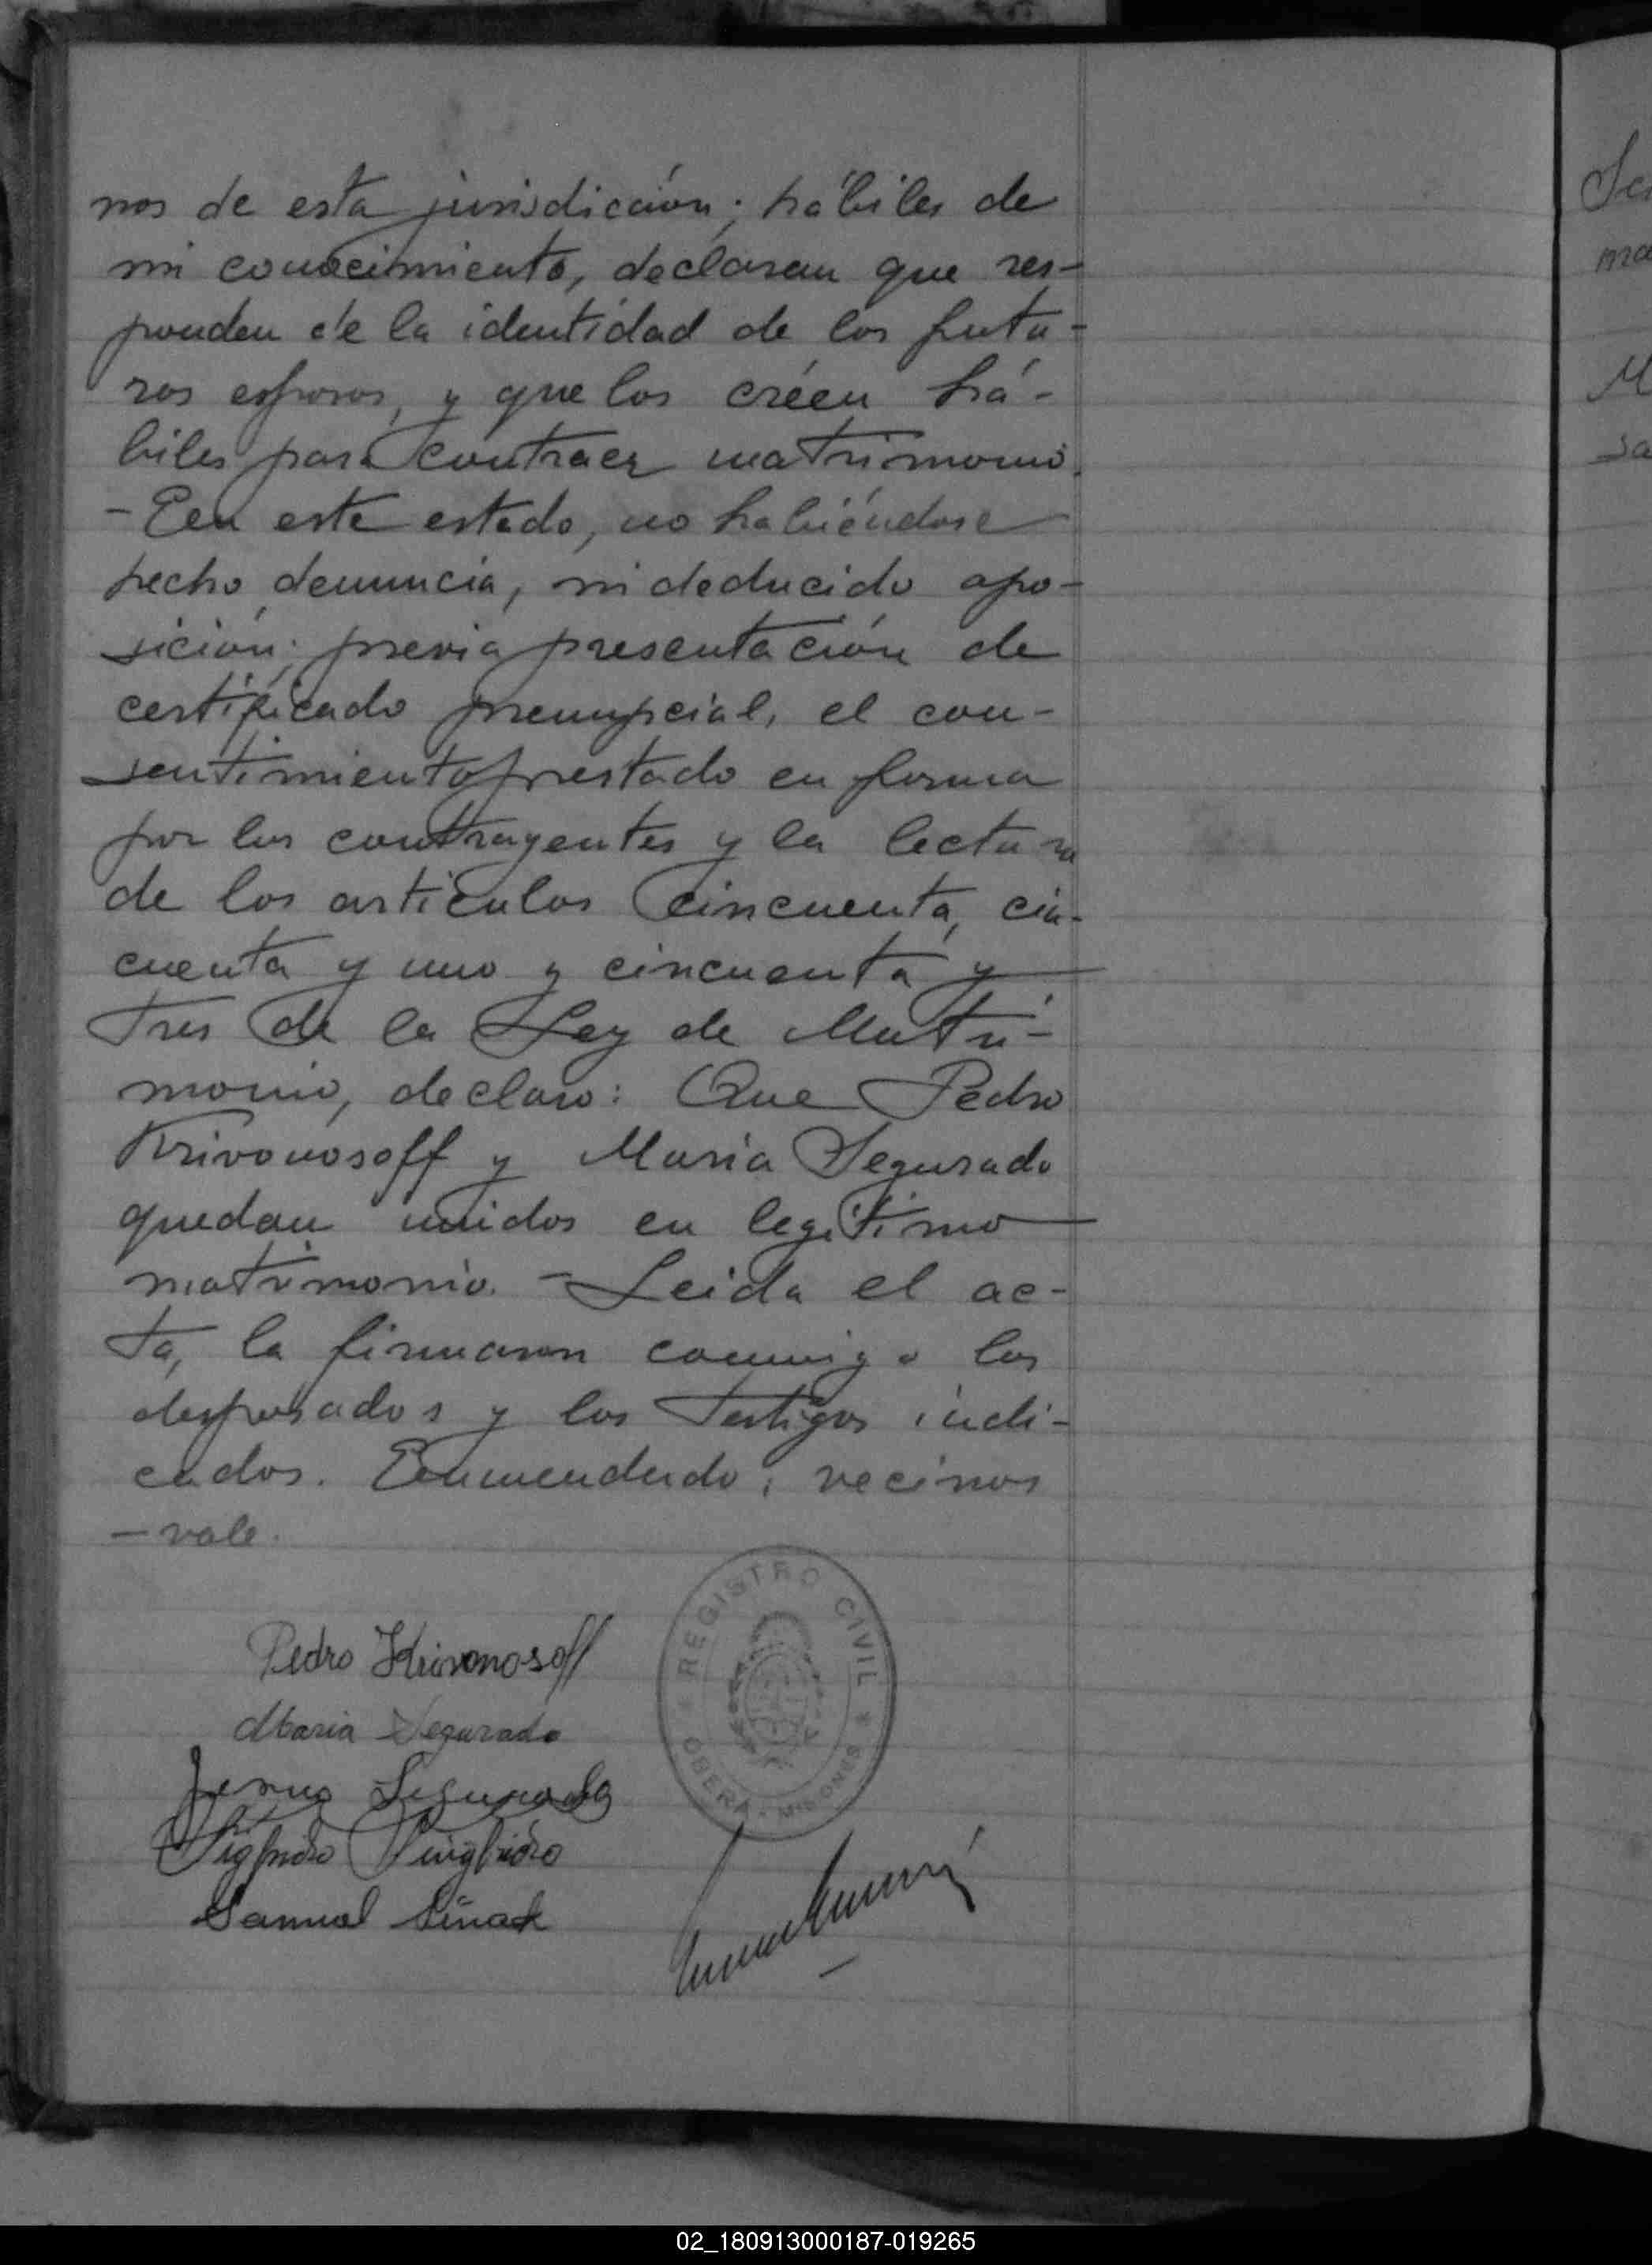 nos de esta jurisdicción; hábiles de
mi conocimiento, declaran que res-
ponden de la identidad de los futu-
ros esposos, y que los créen há-
biles para contraer matrimonio.
- Een este estado, no habiéndose
hecho denuncia, ni deducido opo-
sición; previa presentación de
certificado prenupcial, el con-
sentimiento prestado en forma
por los contrayentes y la lectura
de los artículos cincuenta, cin-
cuenta y uno y cincuenta y
tres de la Ley de Matri-
monio, declaro: Que Pedro
Krivonosoff y María Segurado
quedan unidos en legítimo
matrimonio. - Leida el ac-
ta, la firmaron conmigo los
desposados y los testigos indi-
cados. Enmendado: vecinos
- vale.
REGISTRO CIVIL
* OBERA - MISIONES *
Pedro Krivonosoff
Maria Segurado
Segurado
Sigfrido
Samuel
Se
ma
M
sa
02_180913000187-019265